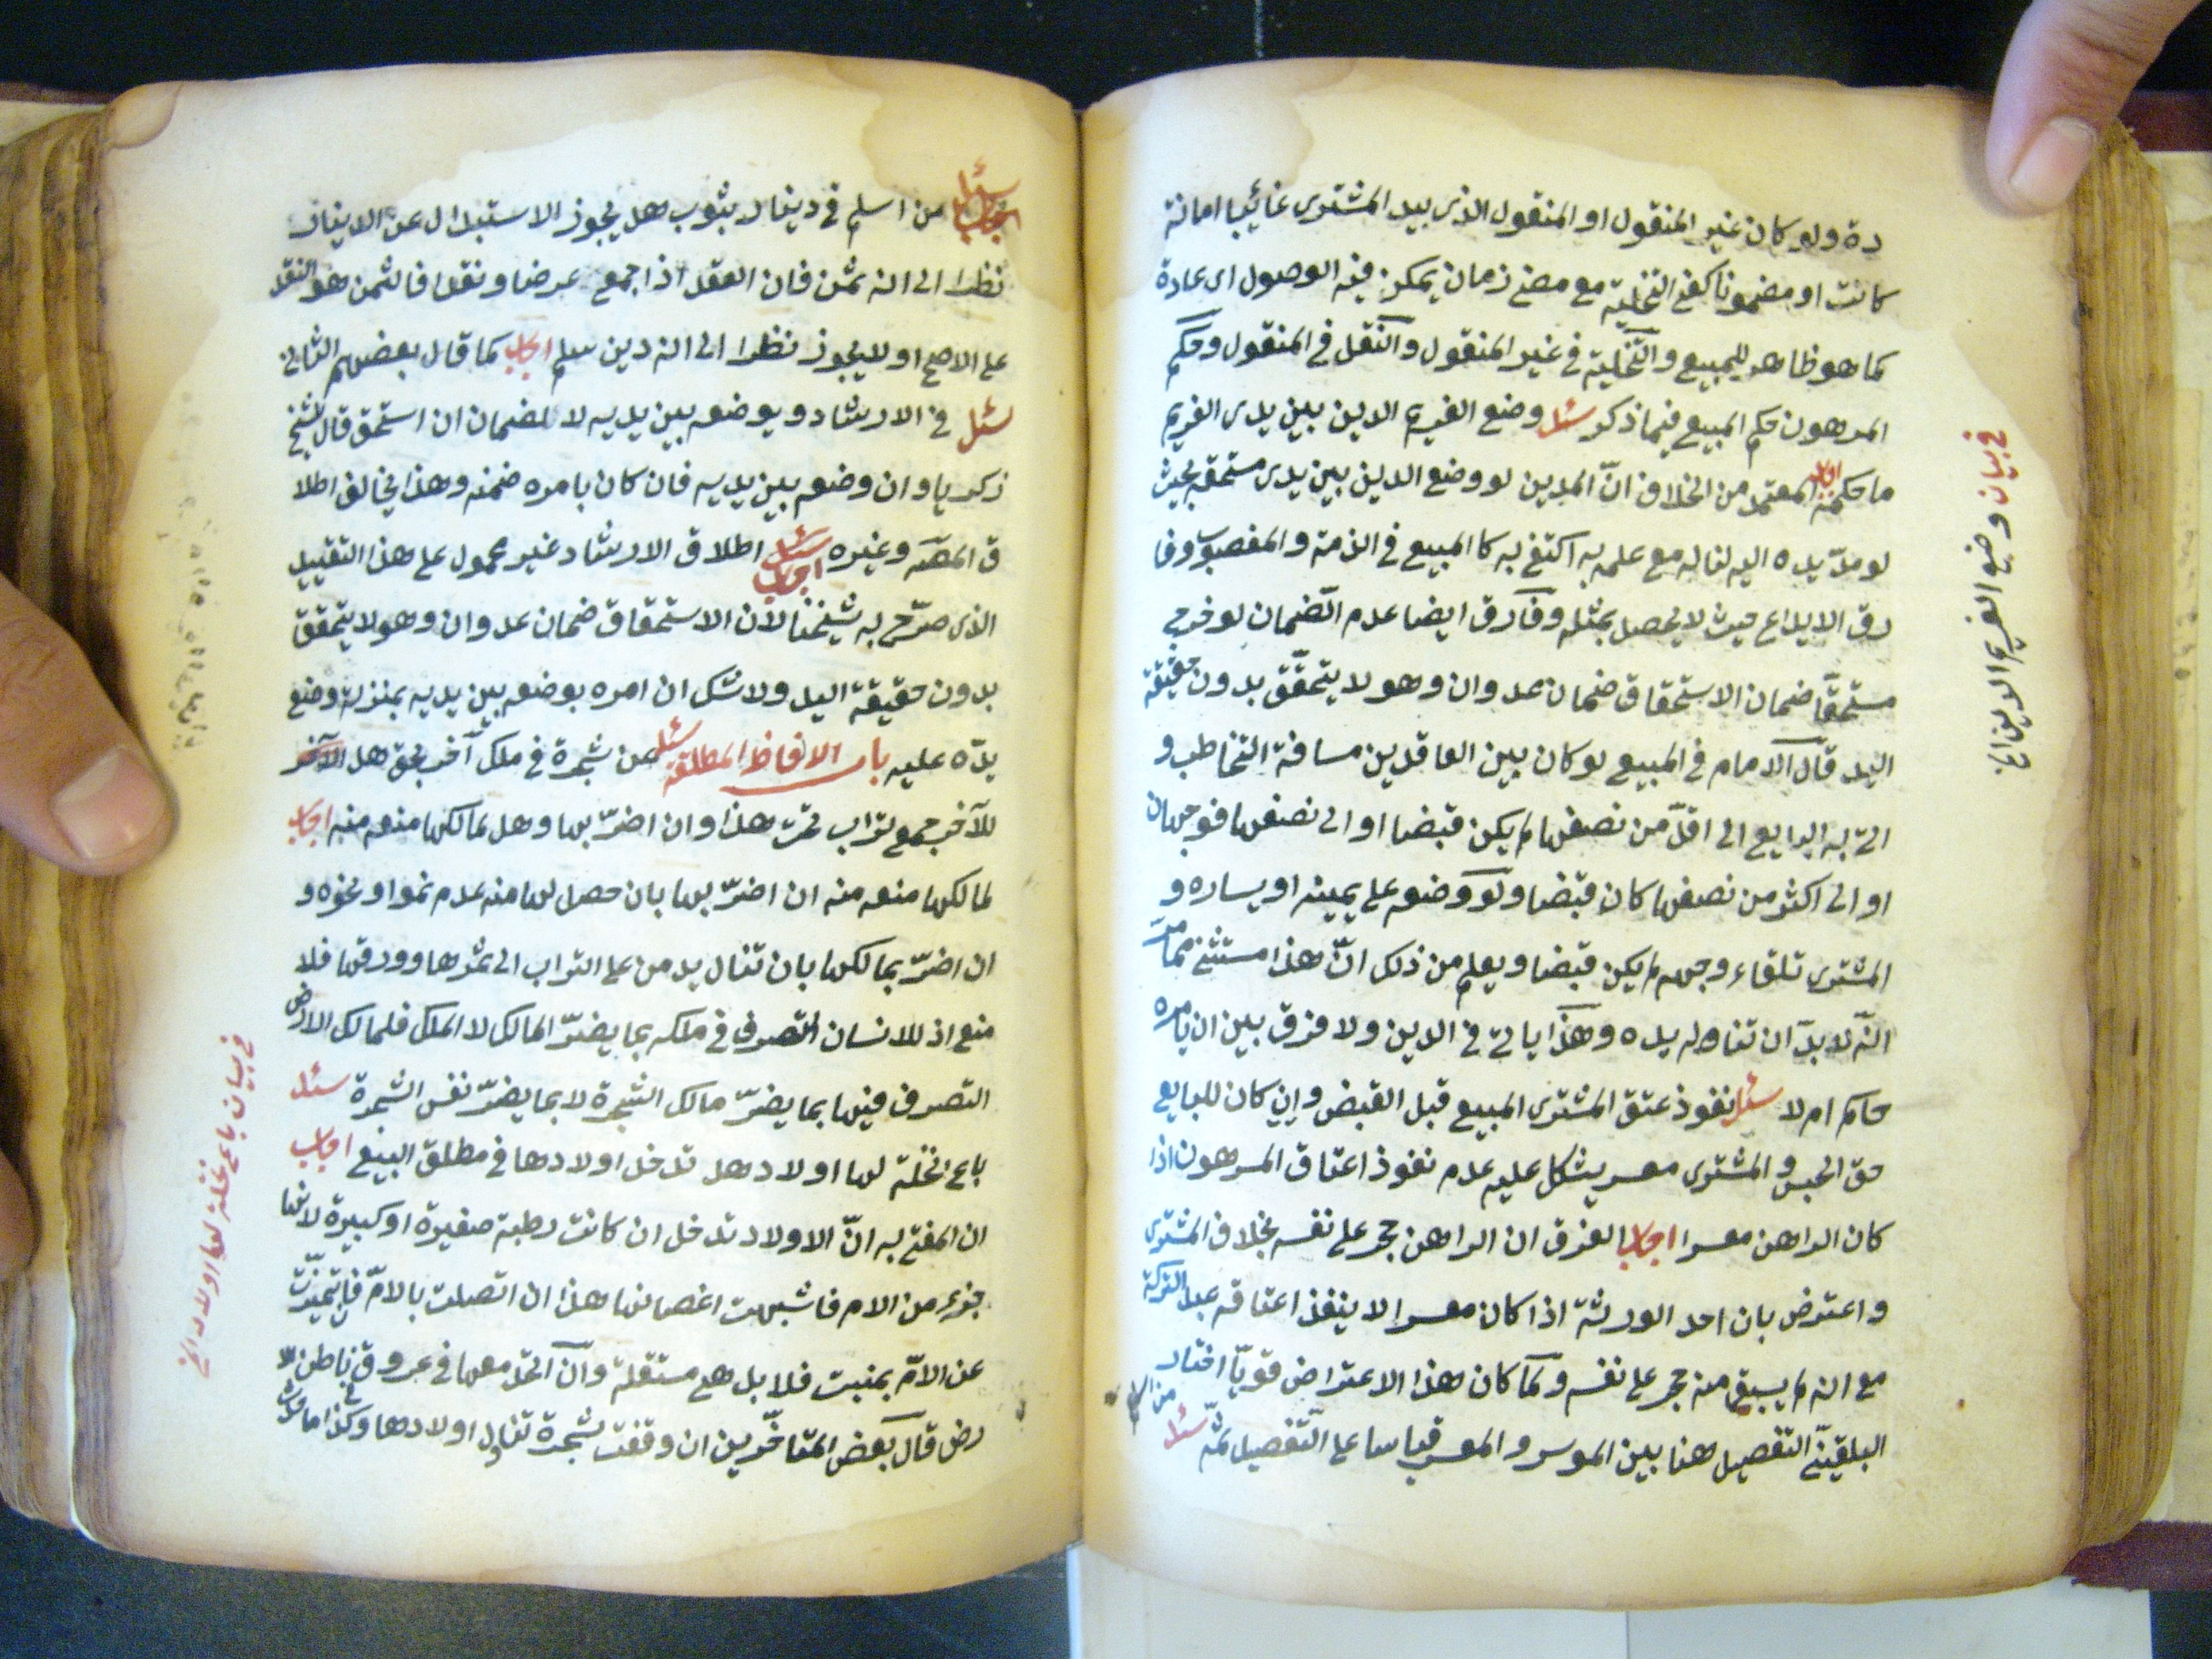 دة ولو كان غير المنقول او المنقول الذى بيد المشترى غائبا امانة
كانت او مضمونا كفى التخلية مع مضى زمان يمكن فيه الوصول اى عادة
كما هو ظاهر للمبيع والتخلية فى غير المنقول والنقل فى المنقول وحكم
المرهون حكم المبيع فيما ذكر سئل وضع الغريم الدين بين يدى الغريم
ما حكمه اجاب المعتمد من الخلاف انّ المدين لو وضع الدين بين يدى مستحقه بحيث
لو مدّ يده اليه لناله مع علمه به اكتفى به كالمبيع فى الذمة والمغصوب وفا
رق الايداع حيث لا يحصل بمثله وفارق ايضا عدم الضمان لو خرج
مستحقّا ضمان الاستحقاق ضمان عدوان وهو لا يتحقّق بدون حقيقة
اليد قال الامام فى المبيع لو كان بين العاقدين مسافة التخاطب و
اتى به البايع الى اقلّ من نصفها لم يكن قبضا او الى نصفها فوجهان
او الى اكثر من نصفها كان قبضا ولو وضعه على يمينه او يساره و
المشترى تلقاء وجهه لم يكن قبضا ويعلم من ذلك انّ هذا مستثنى مما مر
انّه لا بدّ ان تناوله يده وهذا ياتى فى الدين ولا فرق بين ان يامره
حاكم ام لا سئل نفوذ عتق المشترى المبيع قبل القبض وان كان للبايع
حق الحبس والمشترى معسر يشكل عليه عدم نفوذ اعتاق المرهون اذا
كان الراهن معسرا اجاب الفرق ان الراهن حجر على نفسه بخلاف المشترى
واعترض بان احد الورثة اذا كان معسرا لا ينفذ اعتاقه عبد التركة
مع انه لم يسبق منه حجر على نفسه وكما كان هذا الاعتراض قويّا اختار
البلقينىّ التفصيل هنا بين الموسر والمعسر قياسا على التفصيل ثمّه سئل
من
فى بيان وضع الغريم الدين الخ
سئل اجاب من اسلم فى دينار بثوب هل يجوز الاستبدال عن الدينار
نظرا الى انه ثمن فان العقد اذا جمع عرضا ونقدا فالثمن هو النقد
على الاصح او لا يجوز نظرا الى انه دين سلم اجاب كما قال بعضهم الثانى
سئل فى الارشاد ويوضعه بين يديه لا لضمان ان استحق قال شيخ
زكريا وان وضعه بين يديه فان كان بامره ضمنه وهذا يخالف اطلا
ق المصنّه وغيره سئل اجاب اطلاق الارشاد غير محمول على هذا التقييد
الذى صرّح به شيخنا لان الاستحقاق ضمان عدوان وهو لا يتحقق
بدون حقيقة اليد ولا شك ان امره بوضعه بين يديه بمنزلة وضع
يدّه عليه باب الالفاظ المطلقة سئل عمن شجرة فى ملك آخر بحق هل الآخر
للآخر جمع تراب تحت هذا وان اضرّ بها وهل لمالكها منعه منه اجاب
لمالكها منعه منه ان اضرّ بها بان حصل لها منه عدم نموا ونحوه و
ان اضرّ بمالكها بان تنال يد من على التراب الى ثمرها وورقها فلا
منع اذ للانسان التصرف فى ملكه بما يضرّ المالك لا الملك فلمالك الارض
التصرف فيها بما يضرّ مالك الشجرة لا بما يضرّ نفس الشجرة سئل
باع نخلة لها اولاد هل تدخل اولادها فى مطلق البيع اجاب
ان المفتى به انّ الاولاد تدخل ان كانت رطبة صغيرة او كبيرة لانها
جزء من الام فاشبهت اغصانها هذا ان اتصلت بالامّ فان تميّزت
عن الامّ بمنبت فلا بل هى مستقلة وان اتحد معها فى عروق باطن الا
رض قال بعض المتاخّرين ان وقفت شجرة تناول اولادها وكذا ما
فى بيان باع نخلة لها اولاد الخ